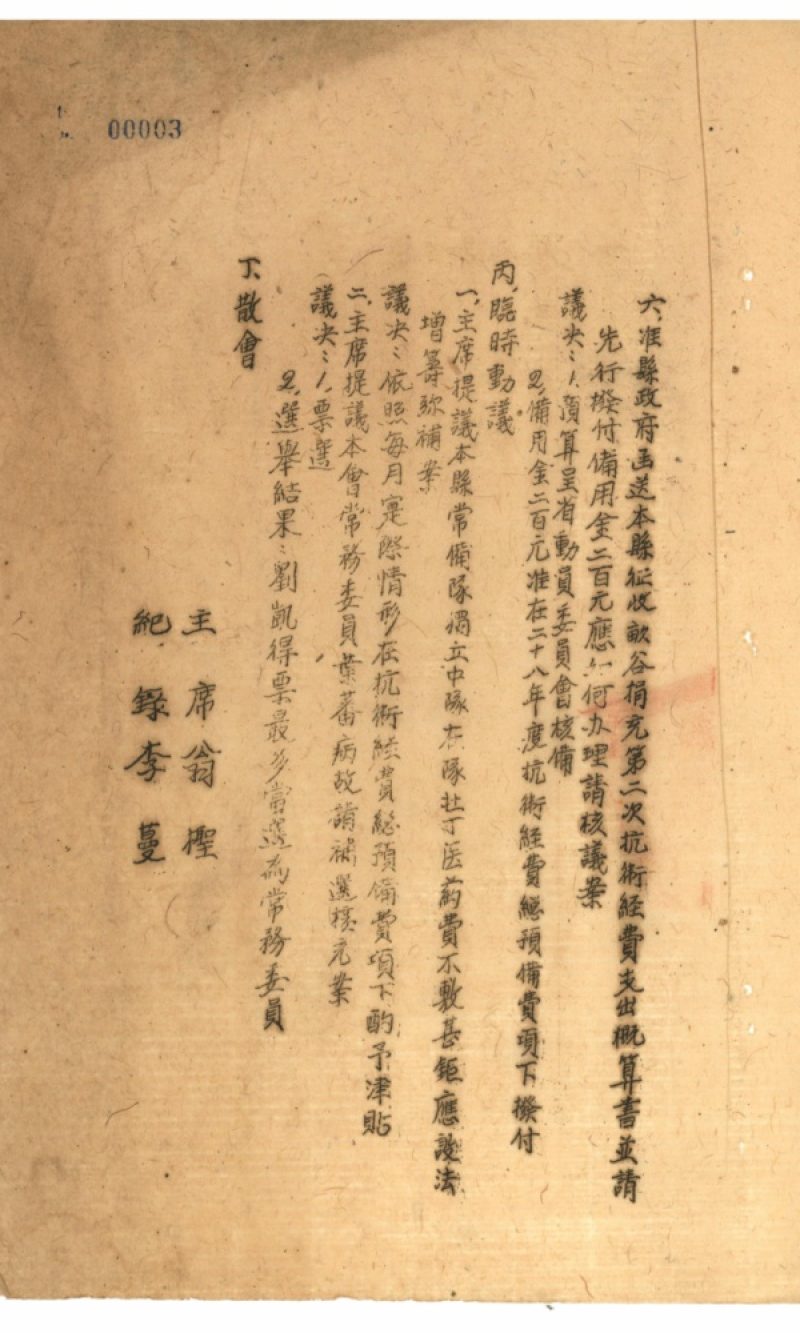 00003
六、准縣政府函送本縣征收畝谷捐充第二次抗衛経費支出概算書並請
先行撥付備用金二百元應如何办理請核議案
議决：1.預算呈省動員委員會核備
2.備用金二百元准在二十八年度抗術経費總預備費項下撥付
丙、臨時動議
一、主席提議本縣常備隊獨立中隊在隊壯丁医药費不敷甚鉅應設法
增籌弥補案
議决：依照每月寔際情形在抗術経費總預備費項下酌予津貼
二、主席提議本會常務委員葉蕃病故請補選核充案
議决：1.票選
2.選舉結果：劉凱得票最多當選為常務委員
丁、散會
主席翁檉
紀錄李蔓